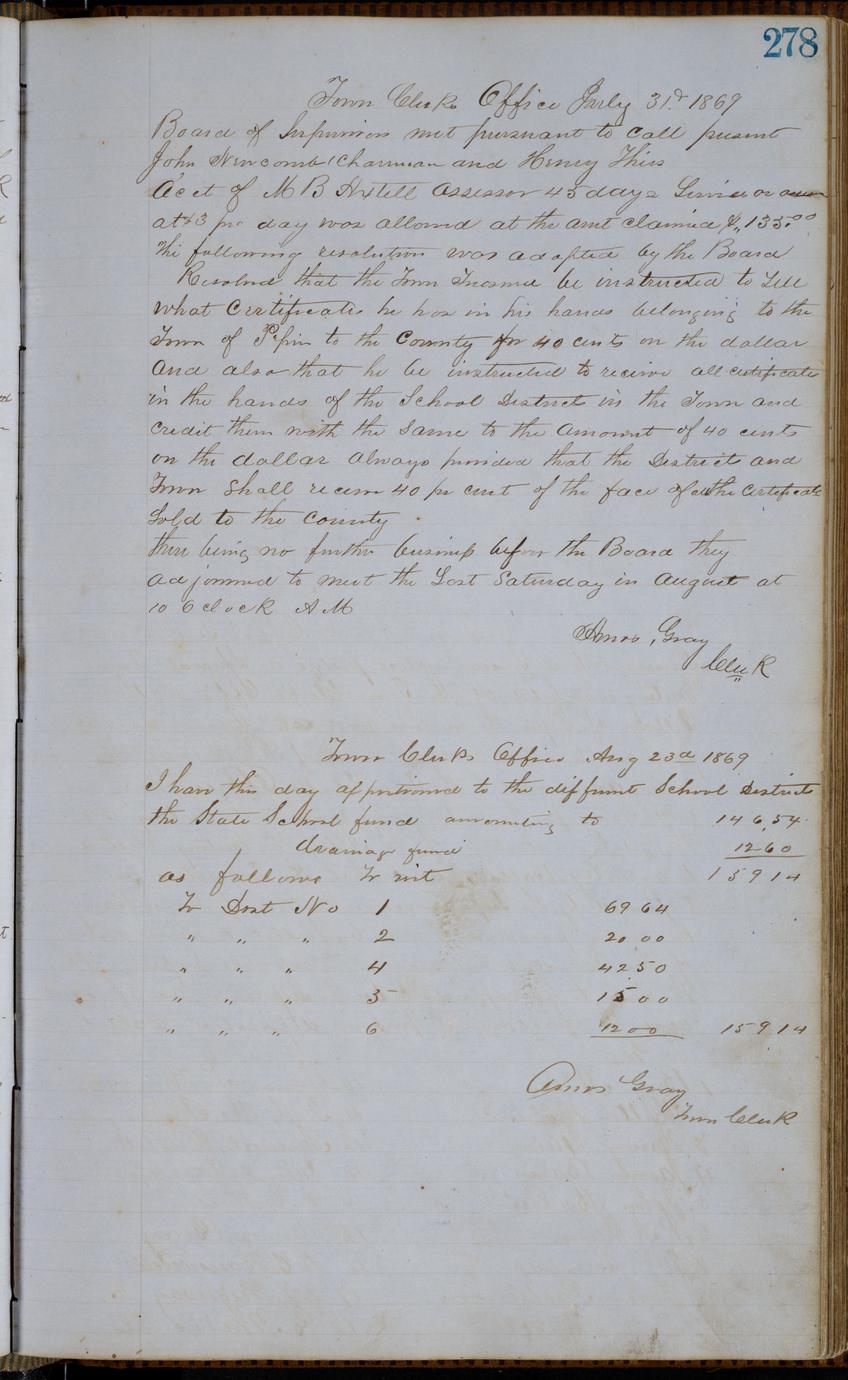 278
Town Clerks Office July 31st 1869
Board of Supervisors met pursuant to call present
John Newcomb Chairman and Henry Thiss
Acct of M B Axtell Assessor 45 days Service as
at $3 per day was allowed at the amt claimed $135.00
The following resolution was adopted by the Board
Resolved that the Town Treasurer be instructed to Sell
what Certificates he has in his hands belonging to the
Town of Pepin to the County for 40 cents on the dollar
And also that he be instructed to receive all certificates
in the hands of the School District in the Town and
credit them with the Same to the Amount of 40 cents
on the dollar Always provided that the Districts and
Town Shall receive 40 per cent of the face of all the Certificates
Sold to the County
there being no further business before the Board they
adjourned to meet the Last Saturday in August at
10 O clock A M
Amos Gray
Clerk
Town Clerks Office Aug 23d 1869
I have this day apportioned to the different School Districts
the State School fund amounting to 146,54
drainage fund 12 60
as follows To wit 159 14
To Dist No 1 69 64
" " " 2 20 00
" " " 4 42 50
" " " 5 15 00
" " " 6 12 00 159 14
Amos Gray
Town Clerk